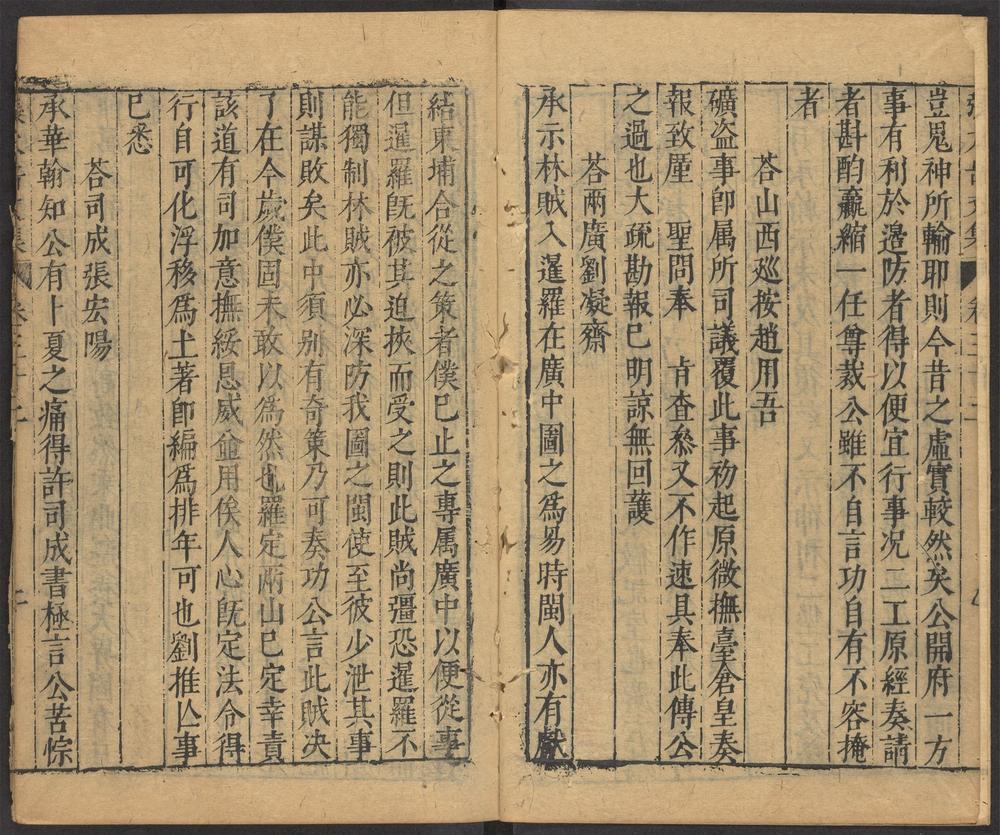 豈鬼神所輸耶則今昔之虛實較然矣公開府一方
事有利於邊防者得以便宜行事况二工原經奏請
者斟酌羸縮一任尊裁公雖不自言功自有不容掩
者
荅山西巡按趙用吾
礦盗事卽属所司議覆此事初起原微撫臺倉皇奏
報致厪 聖問奉 㫖查叅又不作速具奉此傳公
之過也大疏勘報已明諒無回護
荅兩廣劉凝齋
承示林賊入暹羅在廣中圖之爲易時閩人亦有獻
結東埔合從之策者僕已止之專属廣中以便從事
但暹羅旣彼其迫挾而受之則此賊尚彊恐暹羅不
能獨制林賊亦必深防我圖之閩使至彼少泄其事
則謀敗矣此中須别有奇策乃可奏功公言此賊决
了在今歲僕固未敢以爲然也羅定兩山已定幸責
該道有司加意撫綏恩威並用俟人心旣定法令得
行自可化浮移爲土著卽編爲排年可也劉推亾事
已悉
荅司成張宏陽
承華翰知公有卜夏之痛得許司成書極言公苦悰